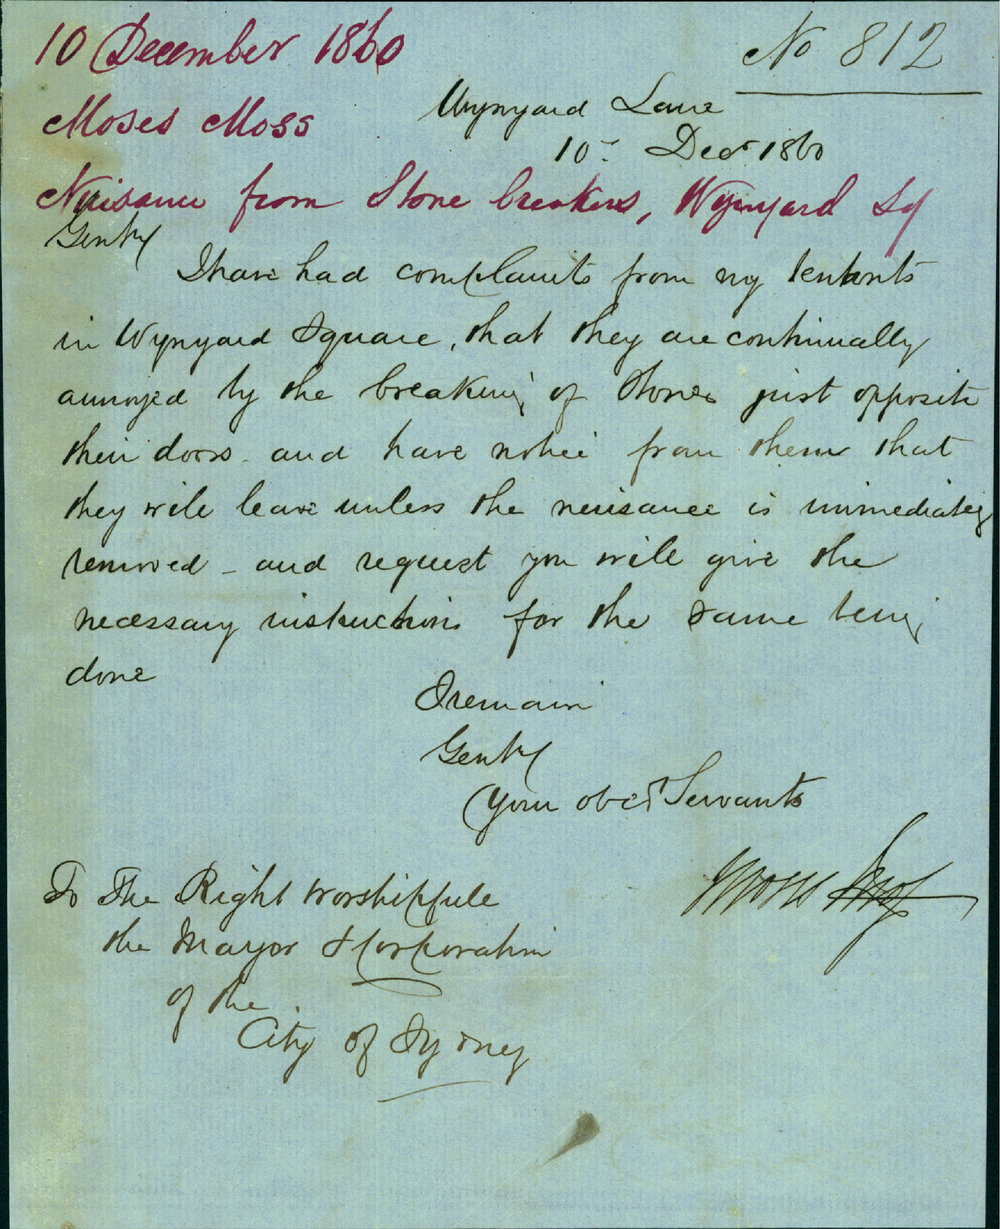 10 December 1860
No 812
Moses Moss
Wynyard Lane
10- Decr 1860
Nuisance from Stone breakers, Wynyard Sq
Gentn
I have had complaints from my tenants
in Wynyard Square, that they are continually
annoyed by the breaking of Stones just opposite
their doors - and have notice from them that
they will leave unless the nuisance is immediately
removed - and request you will give the
necessary instructions for the same being
done
I remain
Gentn
Your obedt Servants
Moses Moss
To The Right Worshipfull
the Mayor & Corporation
of the
City of Sydney